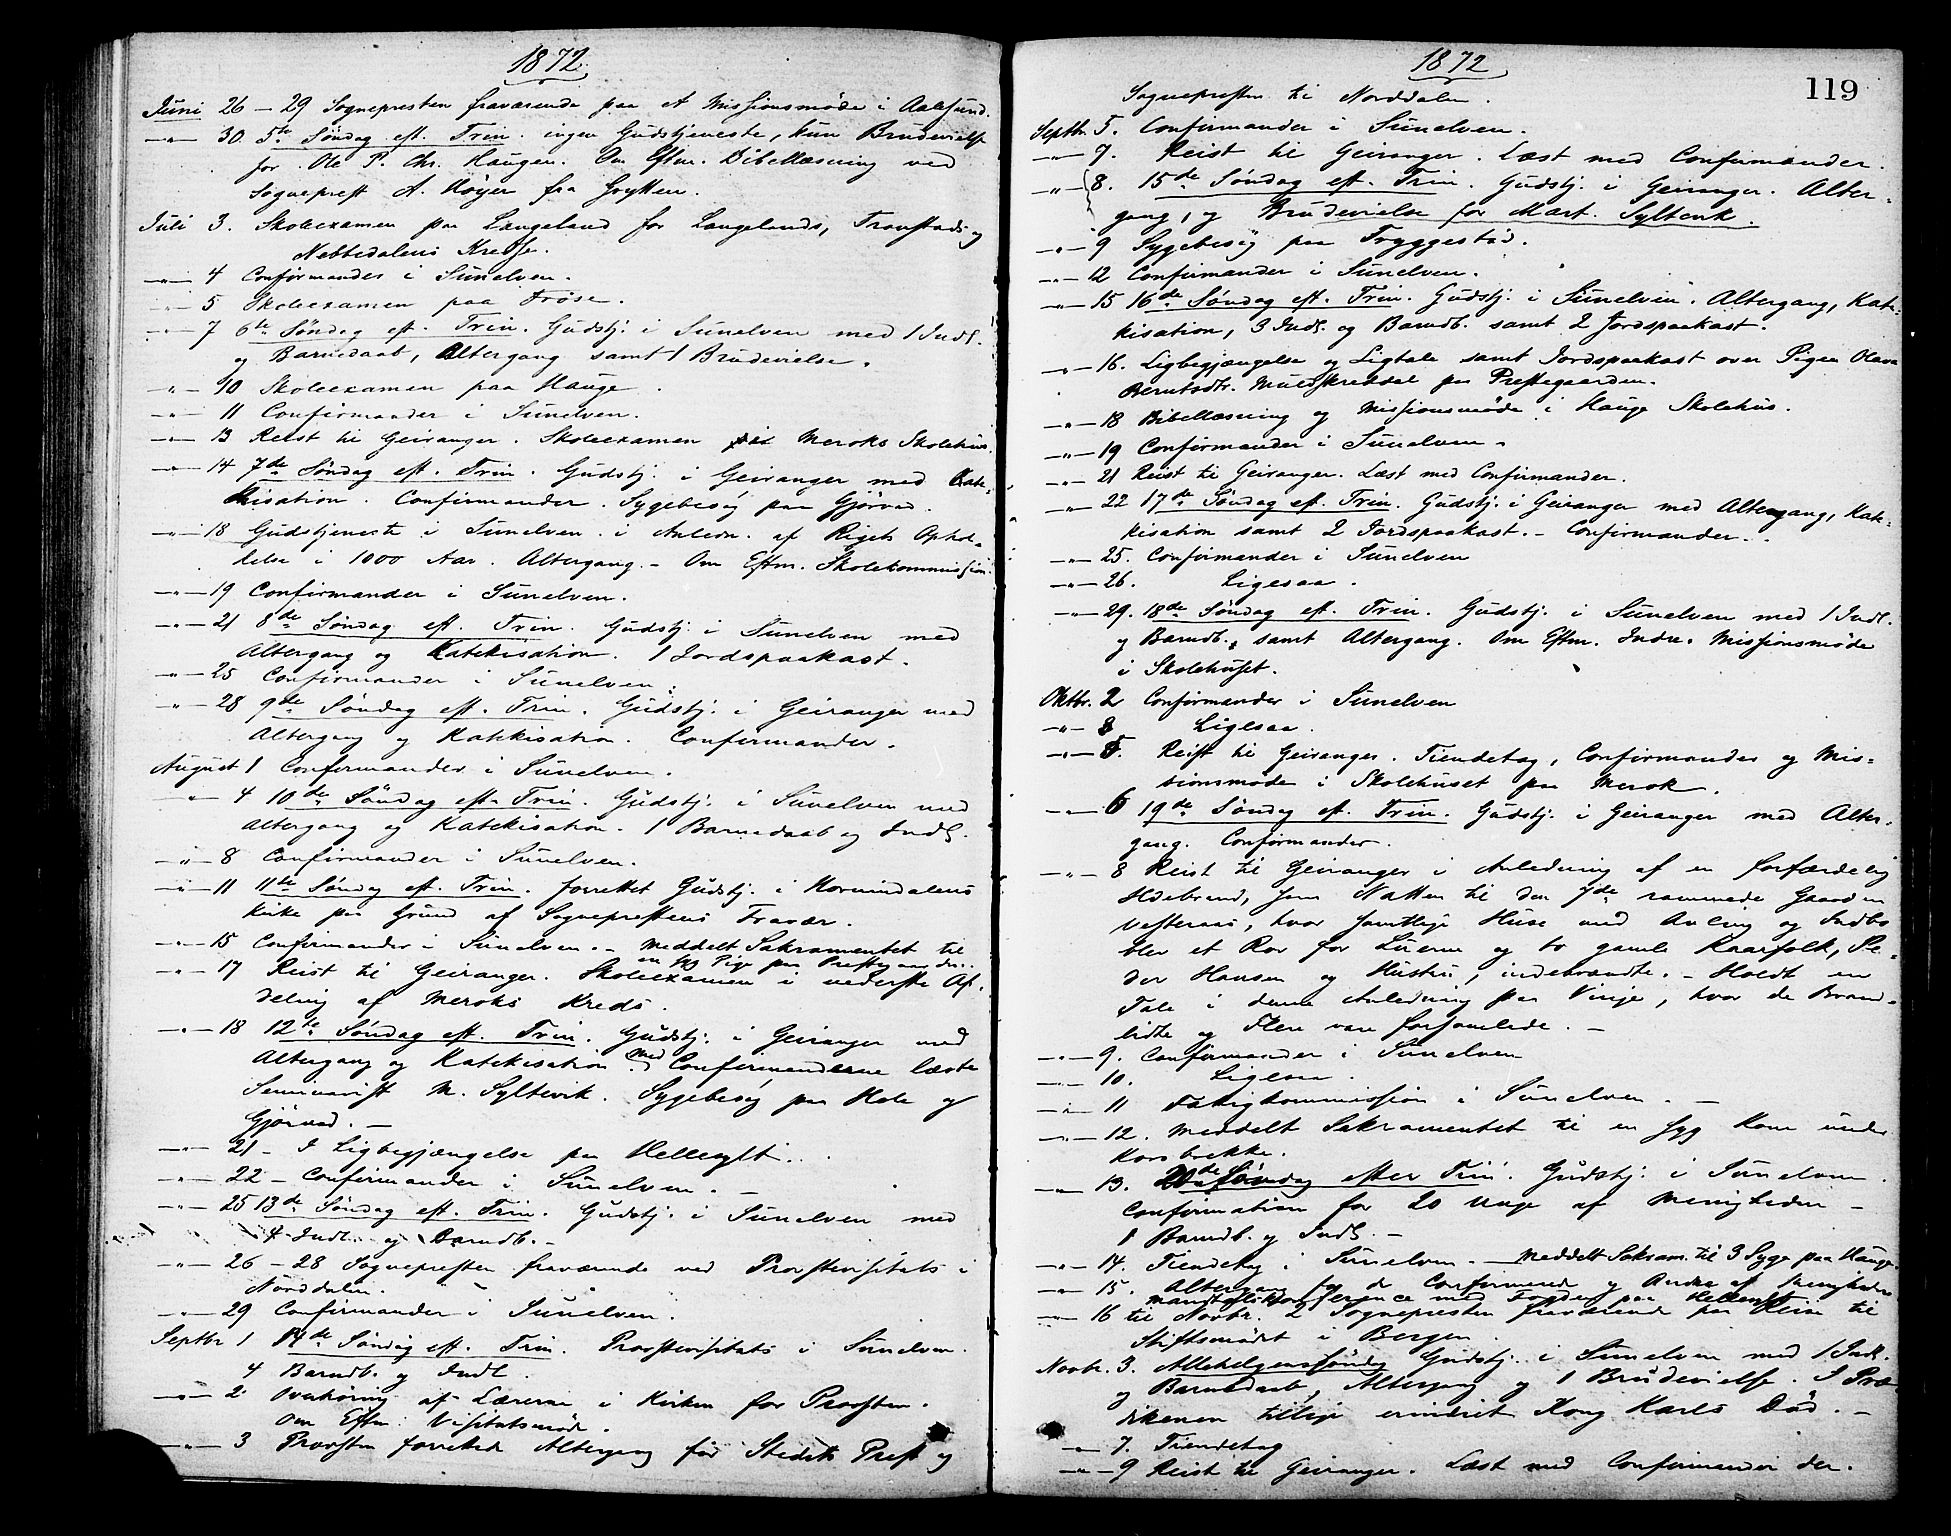 1872
Juni 26 – 29 Sognepresten fraværende paa et Missionsmøde i Aalesund.
–"– 30. 5te Søndag eft. Trin. ingen Gudstjeneste, kun Brudevielse
for Ole P. Chr. Haugen. Om Eftm. Bibellæsning ved
Sogneprest A. Høyer fra Grytten.
Juli 3. Skoleexamen paa Langeland for Langelands, Tronstads og
Nebbedalens Kredse.
–"– 4 Confirmander i Sunelven.
–"– 5 Skoleexamen paa Frøse.
–"– 7 6te Søndag eft. Trin. Gudstj. i Sunelven med 1 Indl.
og Barnedaab, Altergang samt 1 Brudevielse.
–"– 10 Skoleexamen paa Hauge.
–"– 11 Confirmander i Sunelven.
–"– 13 Reist til Geiranger. Skoleexamen i Meroks Skolehus.
–"– 14 7de Søndag eft. Trin. Gudstj. i Geiranger med Kate-
kisation. Confirmander. Sygebesøg paa Gjørvad.
–"– 18 Gudstjeneste i Sunelven i Anledn. af Rigets Ophol-
delse i 1000 Aar. Altergang. – Om Eftm. Skolekommission.
–"– 19 Confirmander i Sunelven.
–"– 21 8de Søndag eft. Trin. Gudstj. i Sunelven med
Altergang og Katekisation. 1 Jordspaakast.
–"– 25 Confirmander i Sunelven.
–"– 28 9de Søndag eft. Trin. Gudstj. i Geiranger med
Altergang og Katekisation. Confirmander.
August 1 Confirmander i Sunelven.
–"– 4 10de Søndag eft. Trin. Gudstj. i Sunelven med
Altergang og Katekisation. 1 Barnedaab og Indl.
–"– 8 Confirmander i Sunelven.
–"– 11 11te Søndag eft. Trin. forrettet Gudstj. i Hornindalens
Kirke paa Grund af Sogneprestens Fravær.
–"– 15 Confirmander i Sunelven. – Meddelt Sakramentet til
en syg Pige paa Prestegaarden.
–"– 17 Reist til Geiranger. Skoleexamen i nederste Af-
deling af Meroks Kreds.
–"– 18 12te Søndag eft. Trin. Gudstj. i Geiranger med
Altergang og Katekisation. Med Confirmanderne læste
Seminarist M. Syltevik. Sygebesøg paa Hole og
Gjørvad. –
–"– 21 – I Ligbegjængelse paa Hellesylt.
–"– 22 – Confirmander i Sunelven. –
–"– 25 13de Søndag eft. Trin. Gudstj. i Sunelven med
4 Indl. og Barndb. –
–"– 26 – 28 Sognepresten fraværende ved Provstevisitats i
Norddalen.
–"– 29 Confirmander i Sunelven.
Septbr 1 14de Søndag eft. Trin. Provstevisitats i Sunelven.
4 Barndb. og Indl.
–"– 2 Overhøring af Lærerne i Kirken for Provsten.
Om Eftm. Visitatsmøde.
–"– 3 Provsten forrettede Altergang for Stedets Prest og
1872
119
Sognepresten til Norddalen.
Septbr. 5. Confirmander i Sunelven.
–"– 7. Reist til Geiranger. Læst med Confirmander.
–"– 8. 15de Søndag eft. Trin. Gudstj. i Geiranger. Alter-
gang, og Brudevielse for Mart. Syltevik.
–"– 9 Sygebesøg paa Tryggestad.
–"– 12 Confirmander i Sunelven.
–"– 15 16de Søndag eft. Trin. Gudstj. i Sunelven. Altergang, Kate-
kisation, 3 Indl. og Barndb. samt 2 Jordspaakast.
–"– 16. Ligbegjængelse og Ligtale samt Jordspaakast over Pigen Olava
Berntsdtr. Muldskreddal paa Prestegaarden.
–"– 18 Bibellæsning og Missionsmøde i Hauge Skolehus.
–"– 19 Confirmander i Sunelven.
–"– 21 Reist til Geiranger. Læst med Confirmander.
–"– 22 17de Søndag eft. Trin. Gudstj. i Geiranger med Altergang, Kate-
kisation samt 2 Jordspaakast. – Confirmander.
–"– 25. Confirmander i Sunelven
–"– 26. Ligesaa.
–"– 29. 18de Søndag eft. Trin. Gudstj. i Sunelven med 1 Indl.
og Barndb., samt Altergang. Om Eftm. Indre Missionsmøde
i Skolehuset.
Oktbr. 2 Confirmander i Sunelven
–"– 3 Ligesaa.
–"– 5. Reist til Geiranger. Tiendetag, Confirmander og Mis-
sionsmøde i Skolehuset paa Merok.
–"– 6 19de Søndag eft. Trin. Gudstj. i Geiranger med Alter-
gang. Confirmander.
–"– 8 Reist til Geiranger i Anledning af en forfærdelig
Ildebrand, som Natten til den 7de rammede Gaarden
Vesteraas, hvor samtlige Huse med Avling og Indbo
blev et Rov for Luerne og to gamle Kaarfolk, Pe-
der Hansen og Hustru, indebrændte. – Holdt en
Tale i denne Anledning paa Vinje, hvor de Brand-
lidte og Flere vare forsamlede. –
–"– 9. Confirmander i Sunelven
–"– 10. Ligesaa.
–"– 11 Fattigkommission i Sunelven. –
–"– 12. Meddelt Sakramentet til en syg Kone under
Korsbrekke.
–"– 13. 20de Søndag efter Trin. Gudstj. i Sunelven.
Confirmation for 20 Unge af Menigheden –
1 Barndb. og Indl. –
–"– 14. Tiendetag i Sunelven. – Meddelt Sakram. til 3 Syge paa Hauge.
–"– 15. Altergang for de Confirmerede og Andre af Menigheden
–"– 16 til Novbr. 2 Sognepresten fraværende paa Reise til
Stiftsmødet i Bergen.
Novbr. 3. Allehelgenssøndag Gudstj. i Sunelven med 1 Indl.
og Barnedaab, Altergang og 1 Brudevielse. I Præ-
dikenen tillige erindret Kong Karls Død. –
–"– 7. Tiendetag
–"– 9 Reist til Geiranger. Læst med Confirmander der.